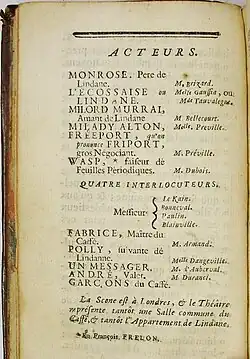 ACTEURS.
MONROSE, Pere de
Lindane. M. Brizard.
L'ECOSSAISE ou Melle Gaussin, ou
LINDANE.
MILORD MURRAI,
Amant de Lindane M. Bellecourt.
MILADY ALTON, Melle. Préville.
FREEPORT, qu'on
prononce FRIPORT,
gros Négociant. M. Préville.
WASP, * faiseur de
Feuilles Périodiques. M. Dubois.
QUATRE INTERLOCUTEURS.
Messieurs
le Kain.
Bonneval.
Paulin.
Blainville.
FABRICE, Maître du
Caffé. M. Armand.
POLLY, suivante de
Lindanne. Melle Dangeville.
UN MESSAGER, M. d'Auberval.
ANDRÉ, Valet. M. Durancé.
GARÇONS du Caffé.
La Scene est à Londres, & le Théatre
représente tantôt une Salle commune du
Caffé, & tantôt l'Appartement de Lindane.
* En François, FRELON.